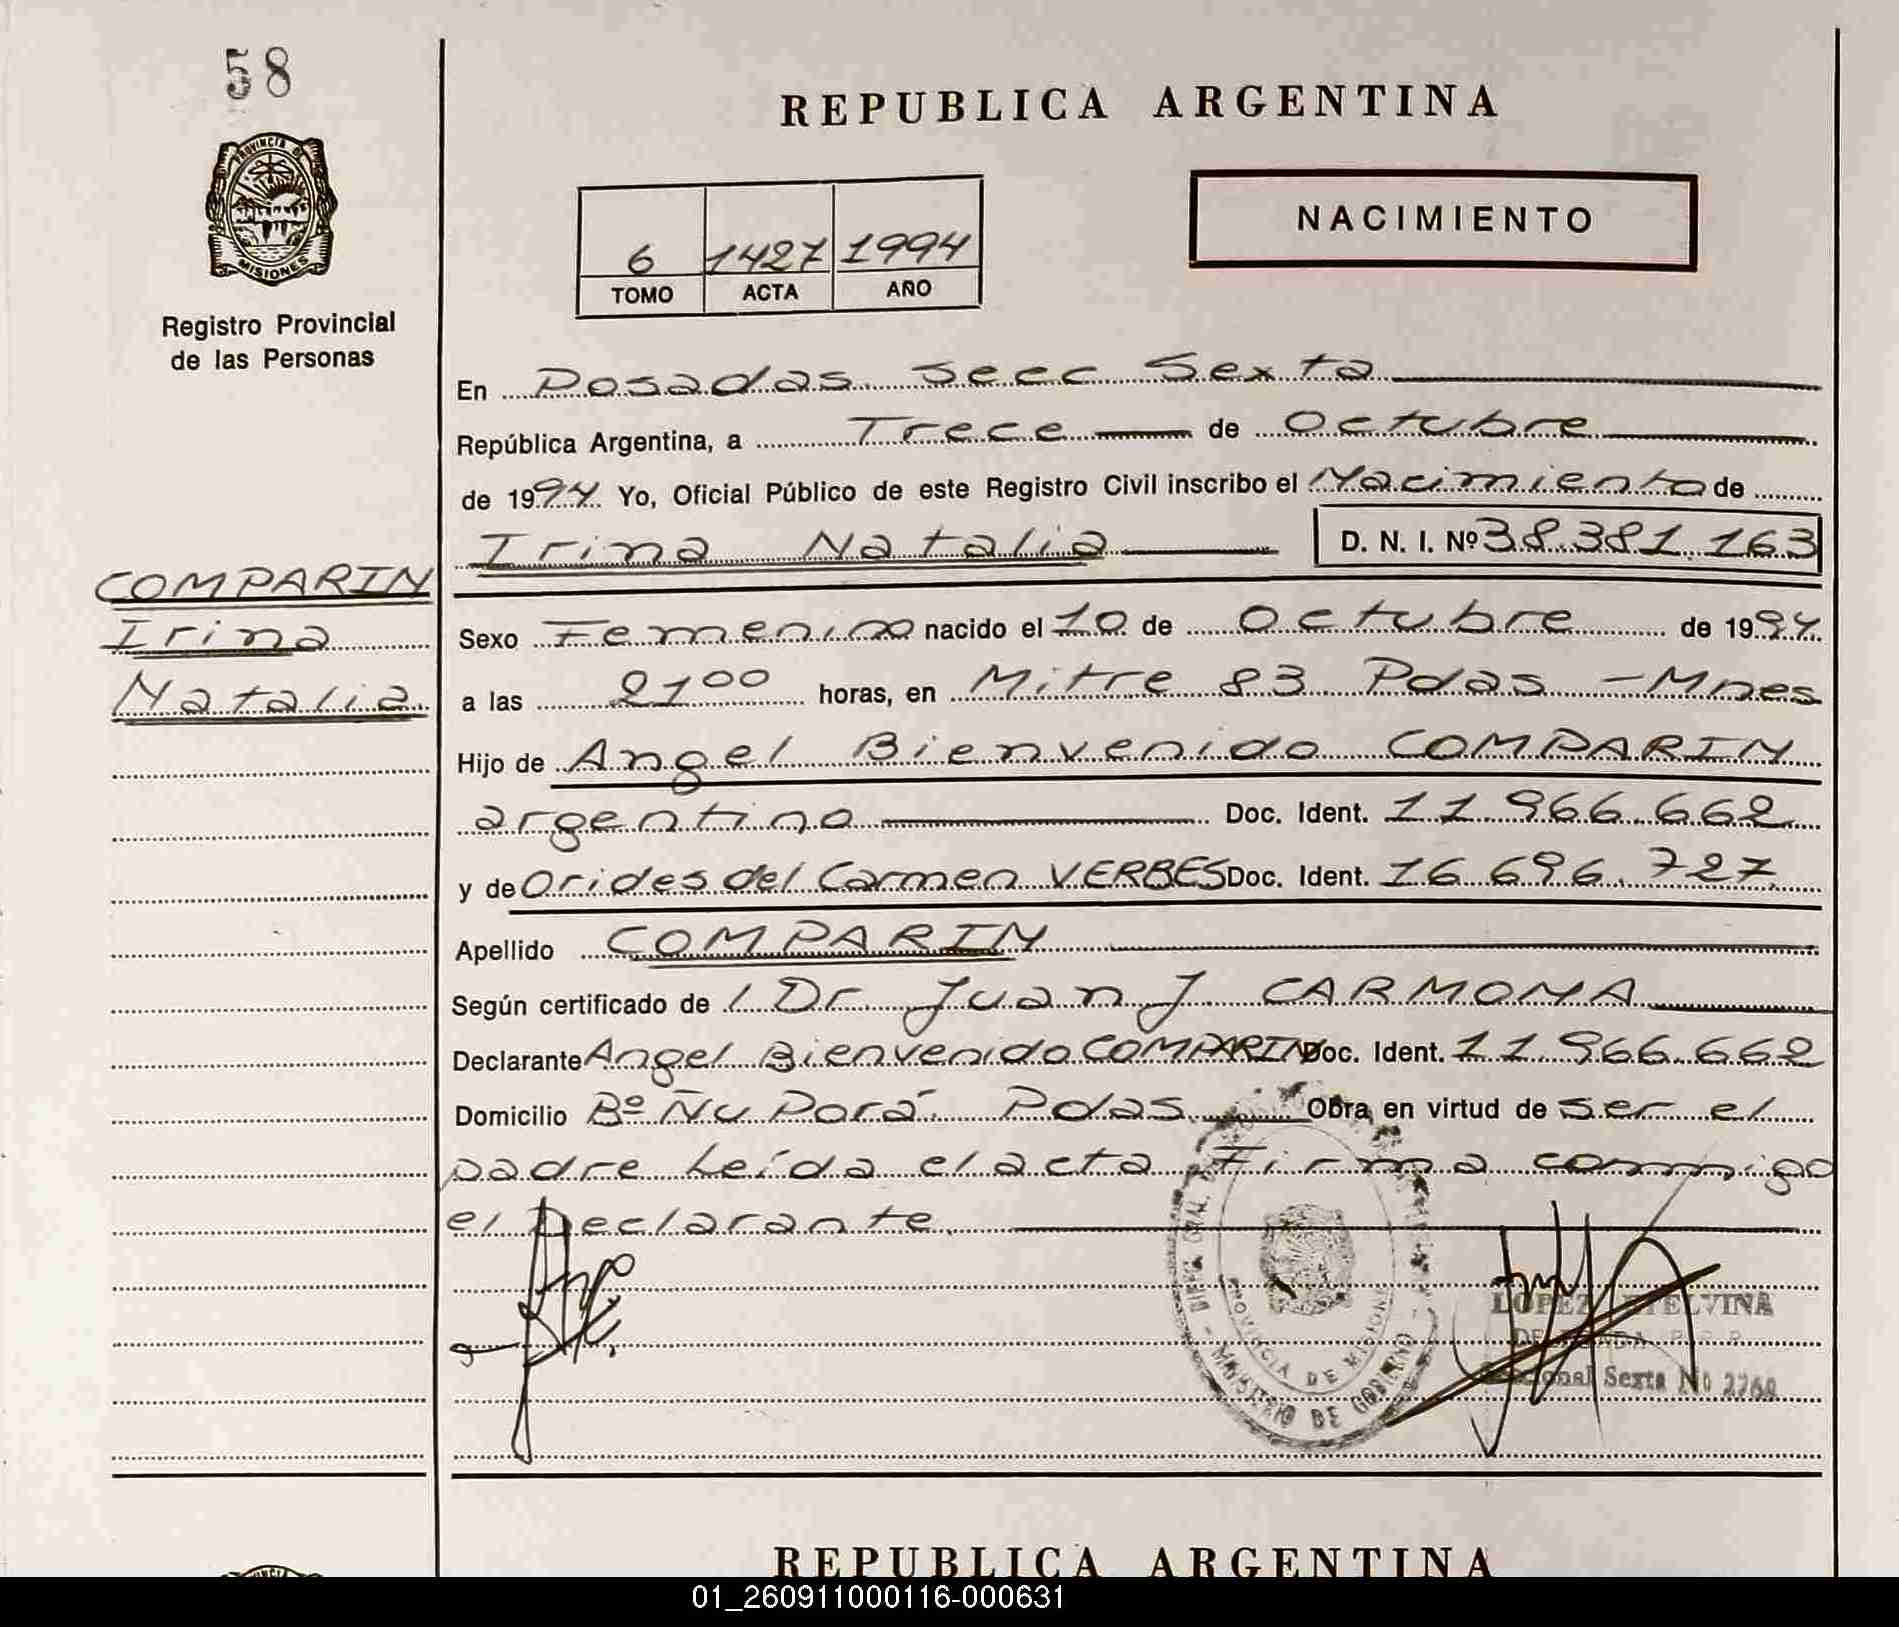 58
REPUBLICA ARGENTINA
NACIMIENTO
6 1427 1994
TOMO ACTA AÑO
PROVINCIA DE
MISIONES
Registro Provincial
de las Personas
En Posadas Secc Sexta
República Argentina, a Trece de Octubre
de 1994 Yo, Oficial Público de este Registro Civil inscribo el Nacimiento de
Irina Natalia D. N. I. Nº 38.381.163
COMPARIN
Irina
Natalia
Sexo Femenino nacido el 10 de Octubre de 1994.
a las 21 00 horas, en Mitre 83 Pdas - Mnes
Hijo de Angel Bienvenido COMPARIN
argentino Doc. Ident. 11.966.662
y de Orides del Carmen VERBES Doc. Ident. 16.696.727
Apellido COMPARIN
Según certificado de / Dr. Juan J. CARMONA
Declarante Angel Bienvenido COMPARIN Doc. Ident. 11.966.662
Domicilio Bº Ñu Porá. Pdas. Obra en virtud de ser el
padre Leída el acta Firma conmigo
el Declarante.
PROVINCIA DE MISIONES
MINISTERIO DE GOBIERNO
LOPEZ ETELVINA
Sexta Nº 2760
REPUBLICA ARGENTINA
01_260911000116-000631